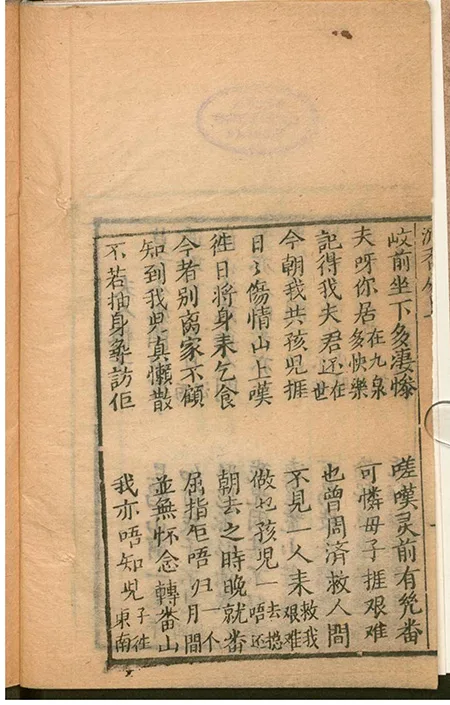 岐前坐下多凄慘 嗟嘆灵前有几番
夫呀你居在九泉多快樂 可憐母子捱艱难
記得我夫君还在世 也曾周済救人間
今朝我共孩児捱 不見一人耒救我艱难
日々傷情山上嘆 做乜孩児一去揔唔还
徃日將身耒乞食 朝去之時晚就番
今者別离家不顧 屈指佢唔归一个月間
知到我児真懶散 並無怀念轉番山
不若抽身尋訪佢 我亦唔知児子徃東南